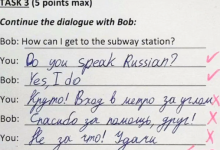 TASK 3 (5 points max)
Continue the dialogue with Bob:
Bob: How can I get to the subway station?
You: Do you speak Russian?
Bob: Yes, I do
You: Круто! Вход в метро за углом
Bob: Спасибо за помощь, друг!
You: Не за что! Удачи